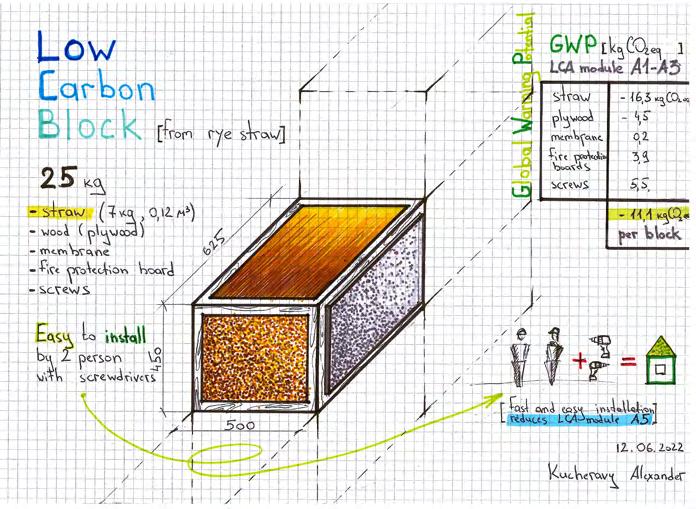 Low
Carbon
Block [from rye straw]
25 kg
- straw (7 kg, 0,12 м³)
- wood (plywood)
- membrane
- fire protection board
- screws
Easy to install
by 2 person
with screwdrivers
625
450
500
Global Warming Potential
GWP [kgCO₂eq]
LCA module A1-A3
straw - 16,3 kgCO₂e
plywood - 4,5
membrane 0,2
fire protection
boards 3,9
screws 5,5
- 11,1 kgCO₂e
per block
+ =
[Fast and easy installation
reduces LCA module A5]
12.06.2022
Kucheravy Alexander